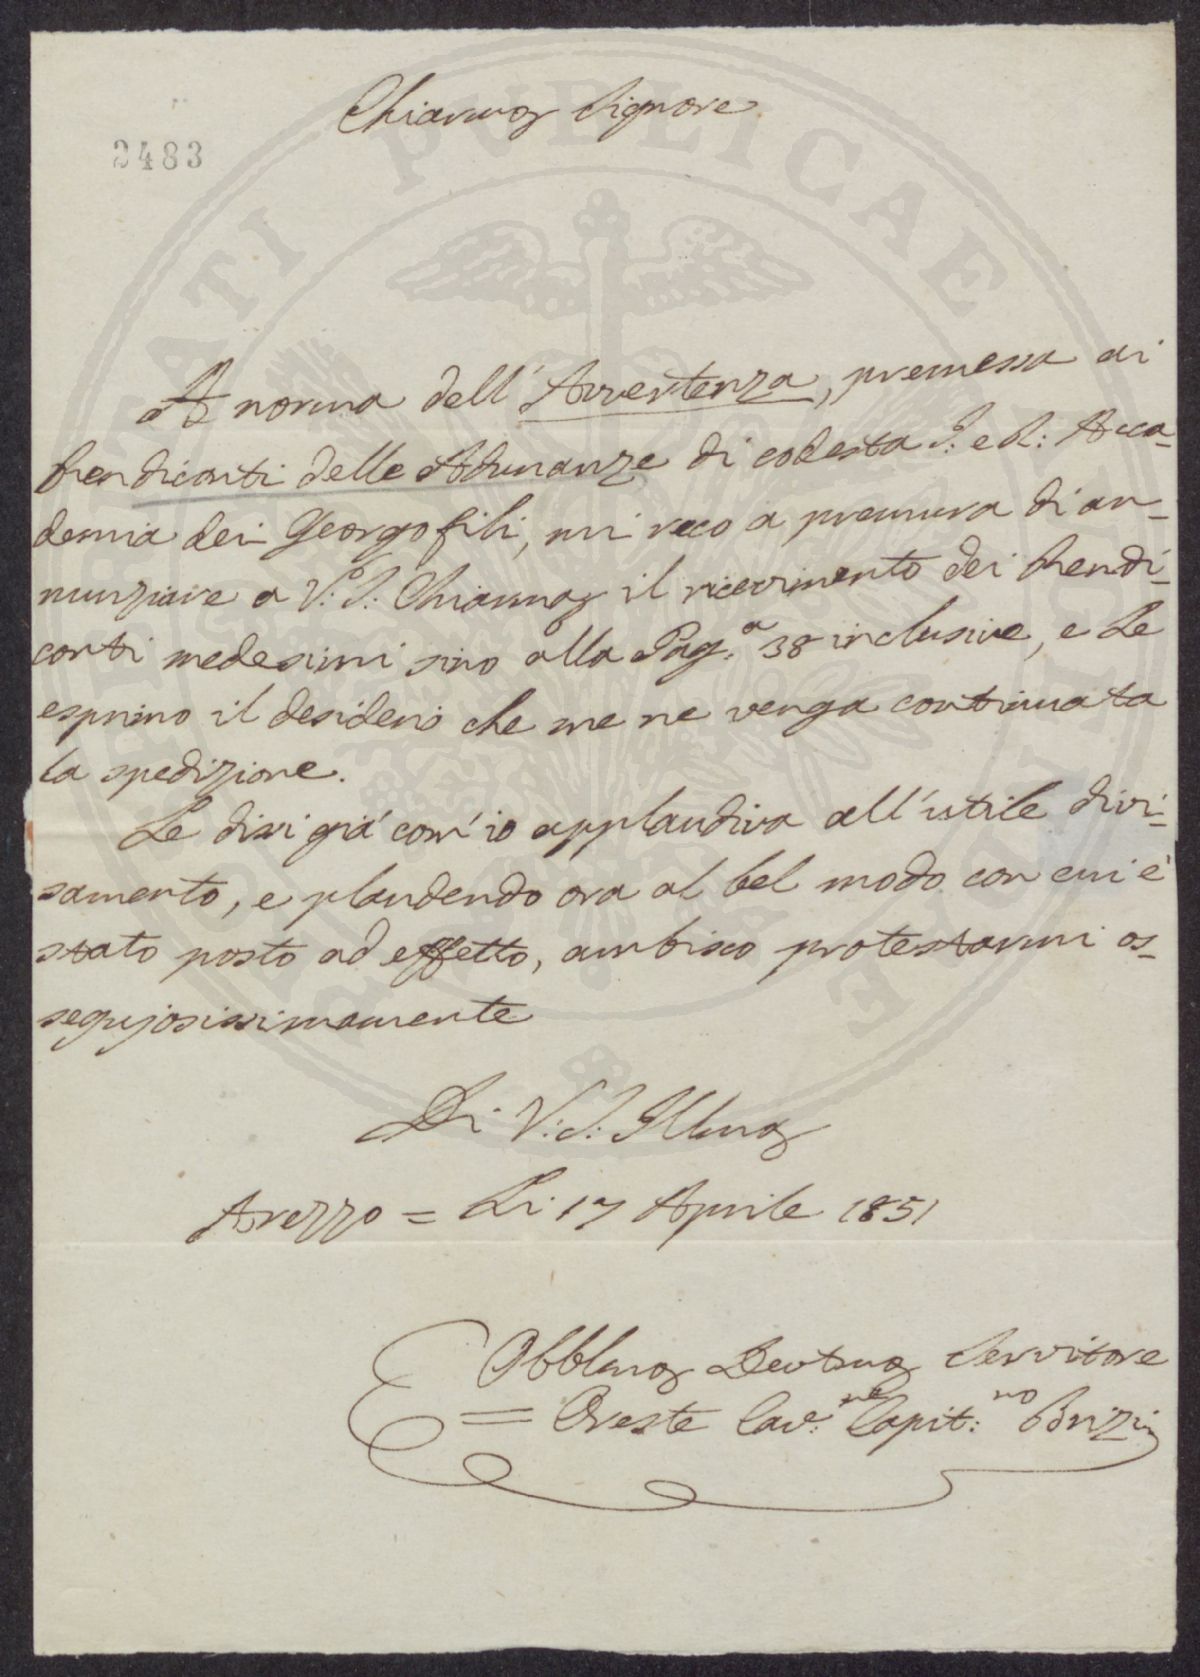 Chiarmo Signore
2483
A norma dell'Avvertenza, premessa ai
Rendiconti delle Adunanze di codesta I: e R: Acca-
demia dei Georgofili, mi reco a premura di an-
nunziare a V: S: Chiarmo il ricevimento dei Rendi-
conti medesimi sino alla Pag:a 38 inclusive, e Le
esprimo il desiderio che me ne venga continuata
la spedizione.
Le dissi già com'io applaudiva all'utile divi-
samento, e plaudendo ora al bel modo con cui è
stato posto ad effetto, ambisco protestarmi os-
sequjosissimamente
Di V: S: Illmo
Arezzo = Li 17 Aprile 1851
Obblmo Devtmo Servitore
= Oreste Cav:re Capit:no Brizi
PUBLICAE